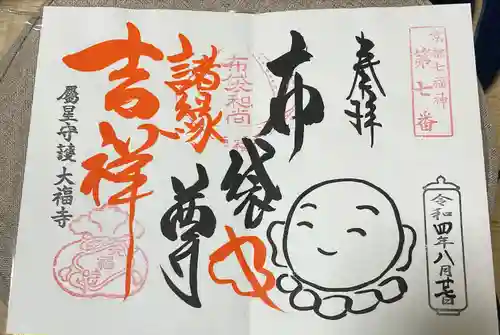 京都七福神
第七番
奉拝
令和四年八月廿日
布袋尊
布袋和尚
諸縁
吉祥
福
屬星守護 大福寺